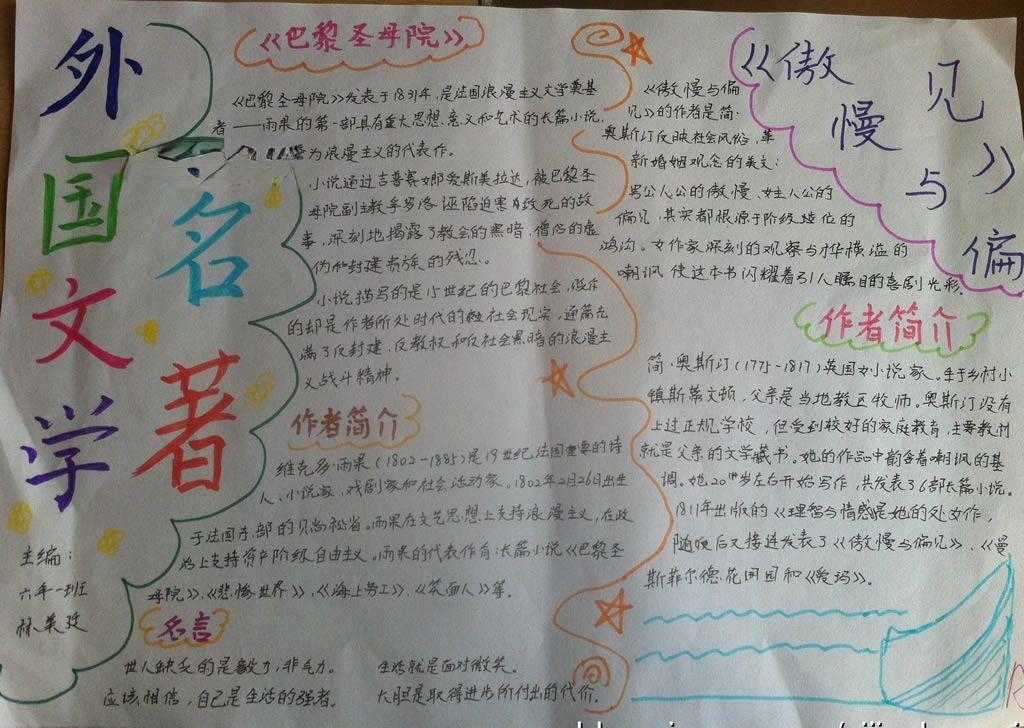 外国文学
名著
主编：
六年一班
《巴黎圣母院》
《巴黎圣母院》发表于1831年，是法国浪漫主义文学奠基
者——雨果的第一部具有重大思想意义和艺术的长篇小说，
为浪漫主义的代表作。
小说通过吉普赛女郎爱斯美拉达，被巴黎圣
母院副主教孚罗洛诬陷迫害致死的故
事，深刻地揭露了教会的黑暗，僧侣的虚
伪和封建贵族的残忍。
小说描写的是15世纪的巴黎社会，反
的却是作者所处时代的社会现实，通篇充
满了反封建，反教权和反社会黑暗的浪漫主
义战斗精神。
作者简介
维克多·雨果（1802-1885）是19世纪法国重要的诗
人、小说家、戏剧家和社会活动家。1802年2月26日出生
于法国东部的贝尚松省。雨果在文艺思想上支持浪漫主义，在政
治上支持资产阶级自由主义。雨果的代表作有：长篇小说《巴黎圣
母院》、《悲惨世界》、《海上劳工》、《笑面人》等。
名言
世人缺乏的是毅力，非气力。
应该相信，自己是生活的强者。
生活就是面对微笑。
大胆是取得进步所付出的代价。
《傲慢与偏见》
《傲慢与偏
见》的作者是简·
奥斯汀反映社会风俗，革
新婚姻观念的美文：
男公人公的傲慢、女主人公的
偏见，其实都根源于阶级地位的
鸿沟。女作家深刻的观察与才华横溢的
嘲讽使这本书闪耀着引人瞩目的喜剧光彩。
作者简介
简·奥斯汀（1775-1817）英国女小说家。生于乡村小
镇斯蒂文顿，父亲是当地教区牧师。奥斯汀没有
上过正规学校，但受到较好的家庭教育，主要教材
就是父亲的文学藏书。她的作品中韵含着嘲讽的基
调。她20岁左右开始写作，共发表了6部长篇小说。
1811年出版的《理智与情感》是她的处女作，
随后又接连发表了《傲慢与偏见》、《曼
斯菲尔德·花园园和《爱玛》。